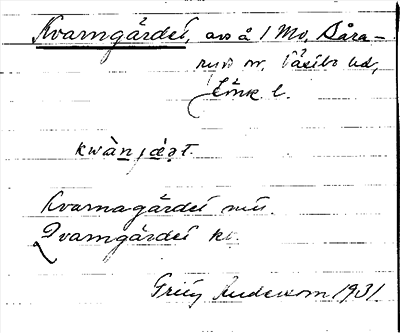 Kvarngärdet, avs å 1 Mo, Båra-
ryds sn, Västbo hd,
Jönk. l.
kwàn jæ̀ṛt.
Kvarnagärdet mtl.
Qvarngärdet kt
Greta Anderson 1931.